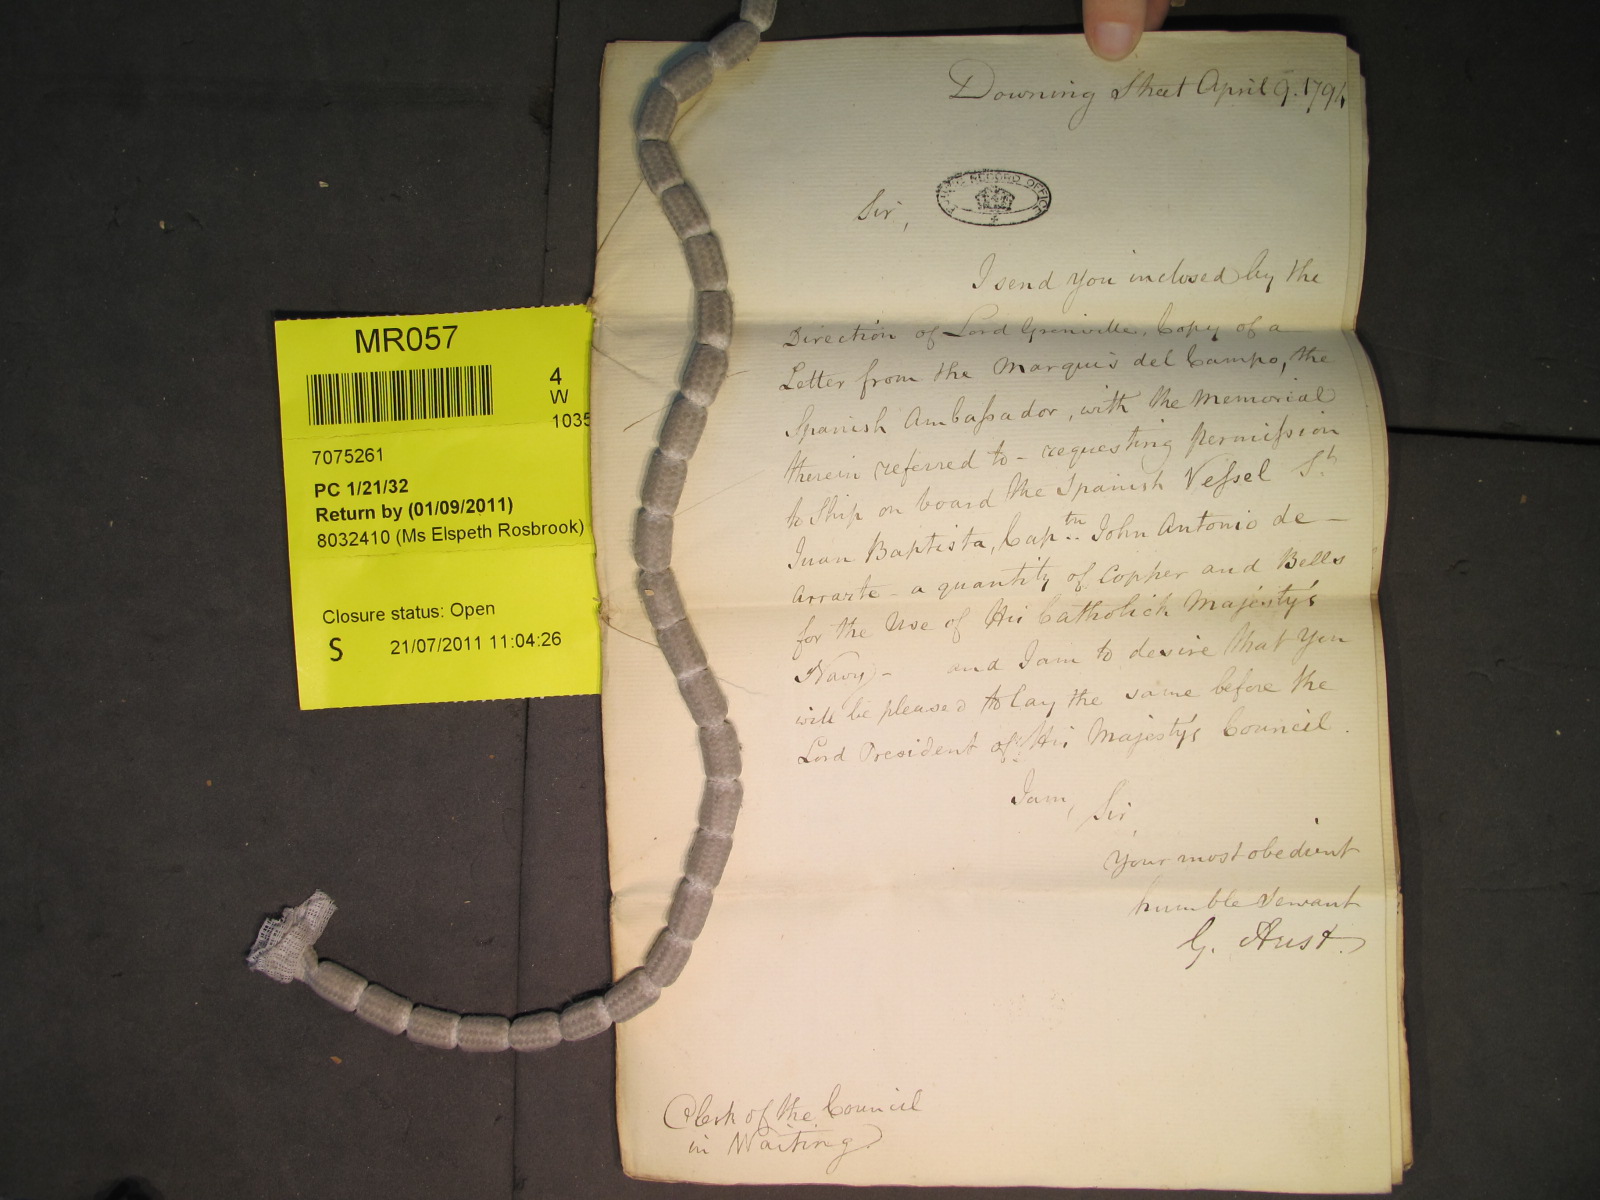 Downing Street April 9. 1794
PUBLIC RECORD OFFICE
Sir,
I send you inclosed by the
Direction of Lord Grenville, Copy of a
Letter from the Marquis del Campo, the
Spanish Ambaſsador, with the Memorial
therein referred to - requesting permiſsion
to Ship on board the Spanish Veſsel St.
Juan Baptista, Captn. John Antonio de -
Arrarte - a quantity of Copper and Bells
for the Use of His Catholick Majesty's
Navy - and I am to desire that you
will be pleased to lay the same before the
Lord President of His Majesty's Council.
I am, Sir
Your most obedient
humble Servant
G. Aust.
Clerk of the Council
in Waiting
MR057
4
W
1035
7075261
PC 1/21/32
Return by (01/09/2011)
8032410 (Ms Elspeth Rosbrook)
Closure status: Open
S 21/07/2011 11:04:26